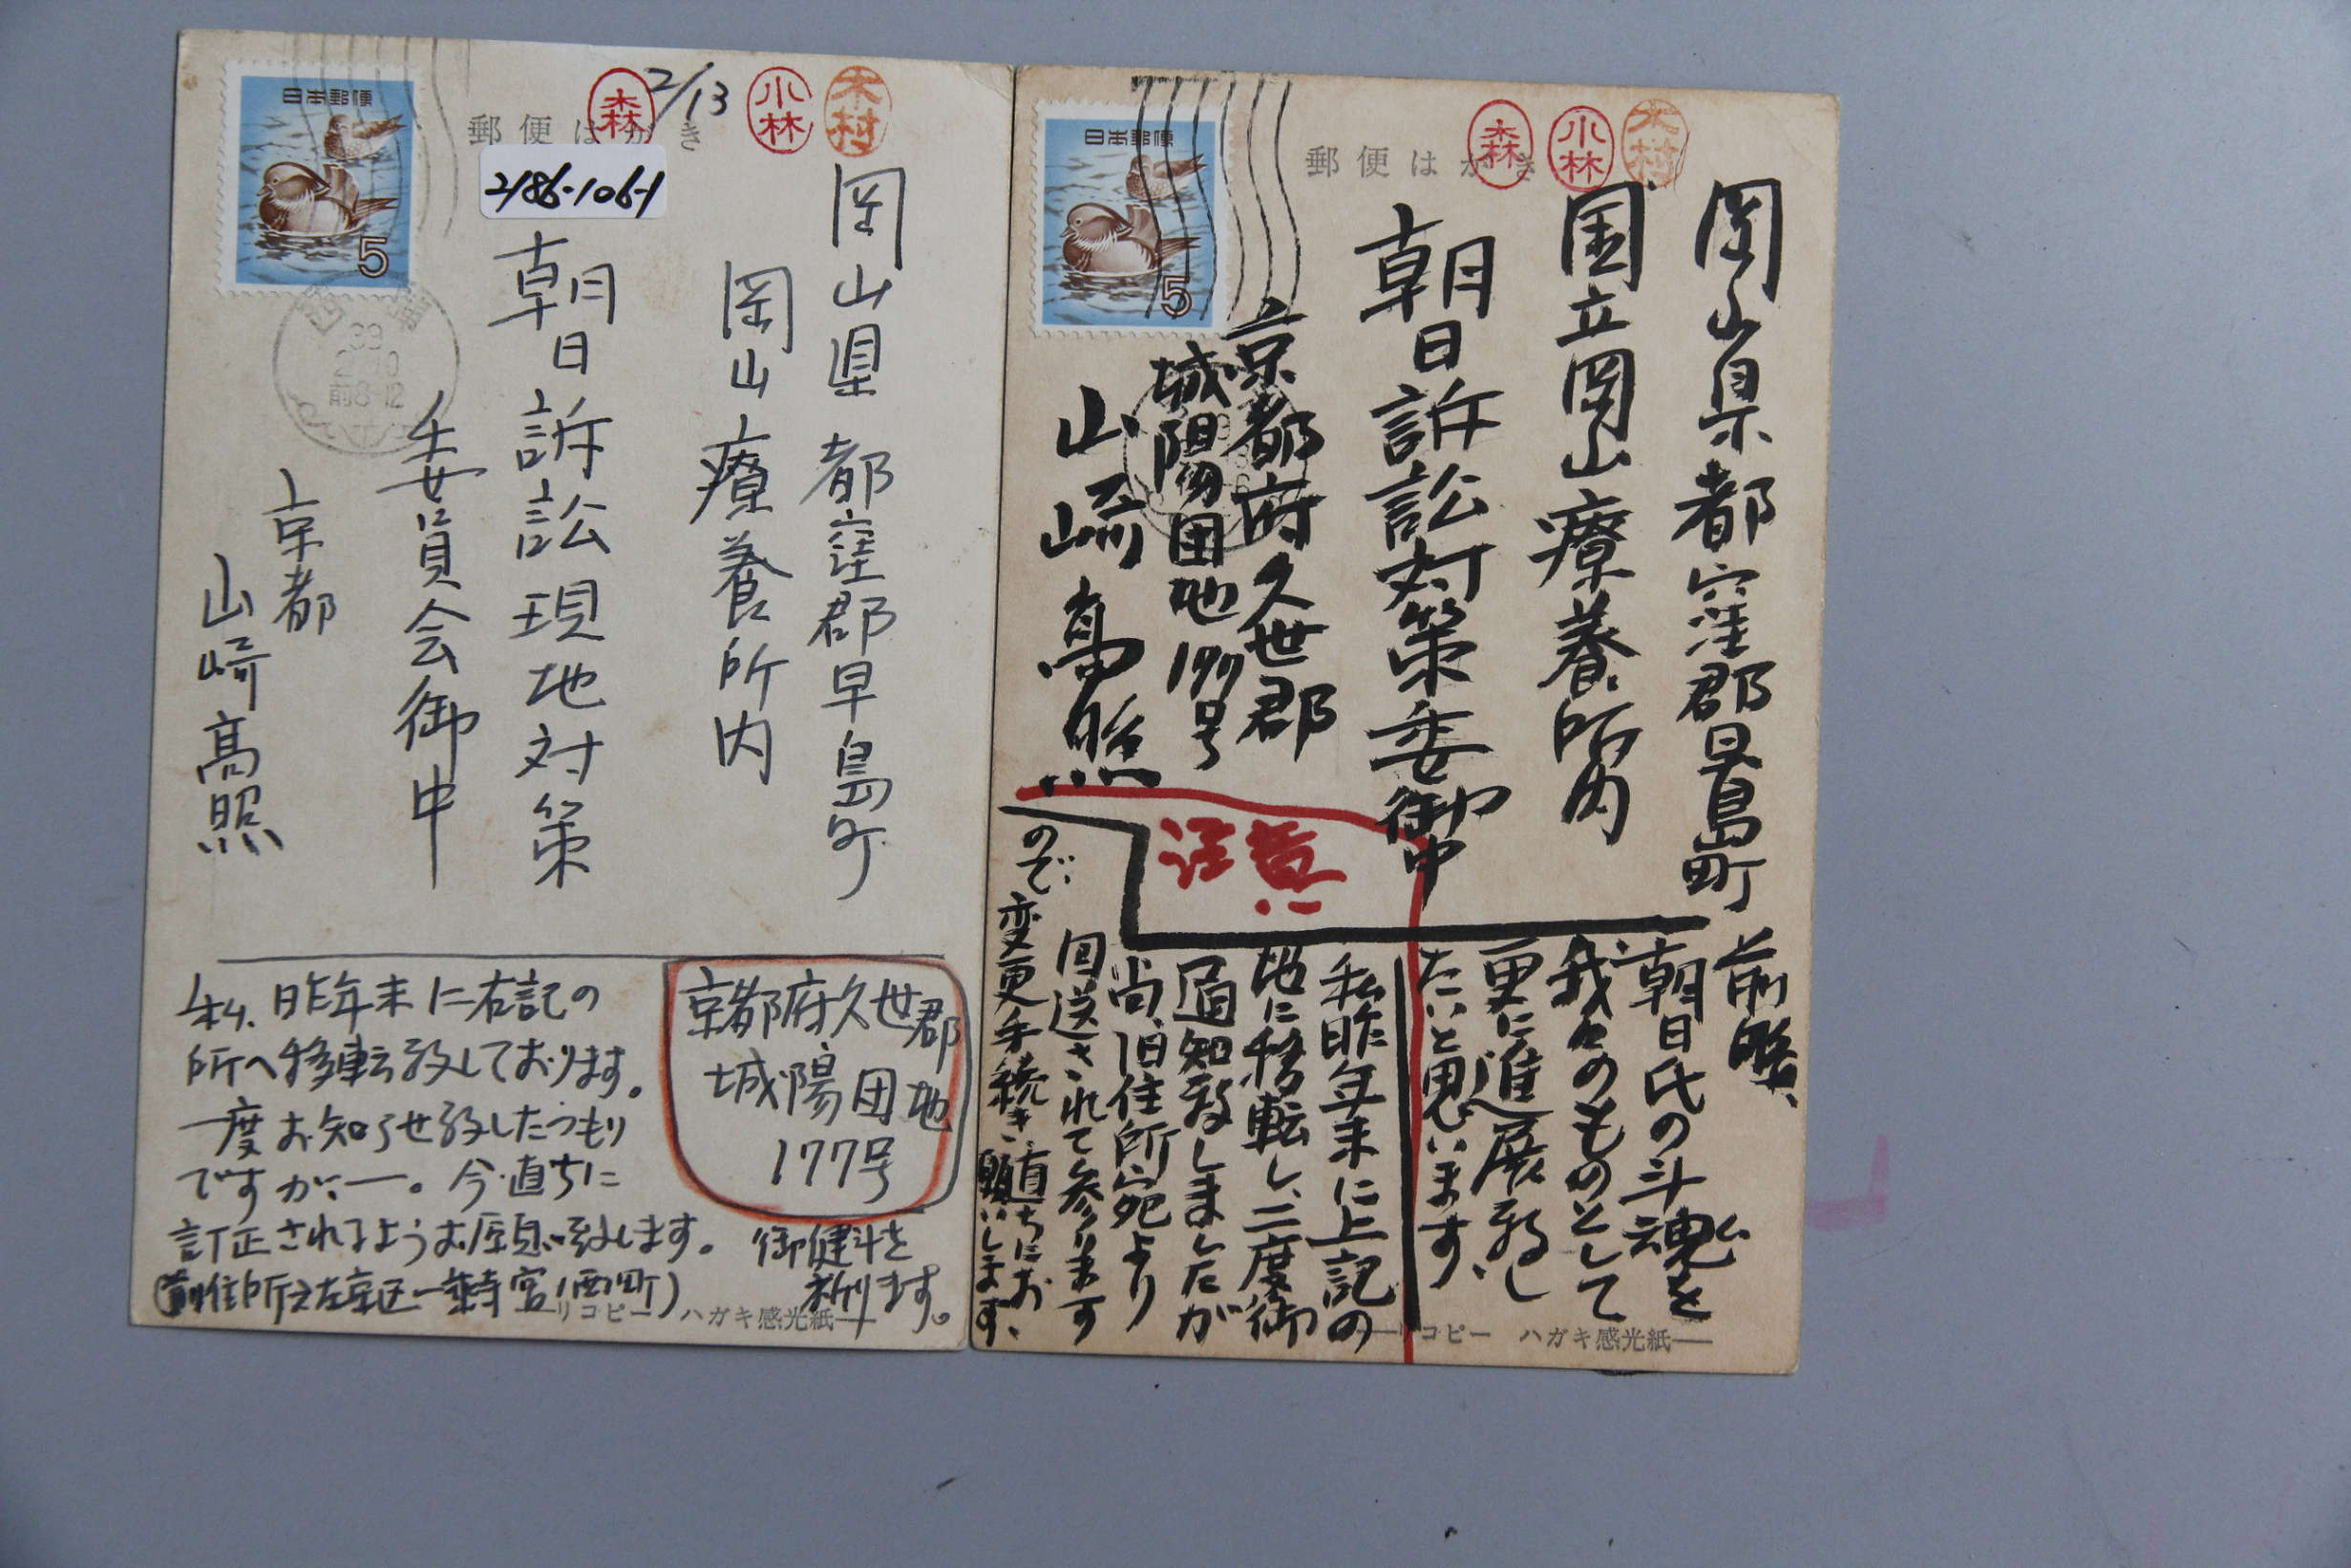 日本郵便
5
郵便はがき
森
2/13
小林
木村
2186-106-1
岡山県都窪郡早島町
岡山療養所内
朝日訴訟現地対策
委員会御中
京都
山崎高照
39
前8-12
京都府久世郡
城陽団地
177号
私、昨年末に右記の
所へ移転致しております。
一度お知らせ致したつもり
ですが、ー。今直ちに
訂正されるようお願い致します。
(前住所は左京区一乗寺宮ノ西町)
御健斗を
祈ります。
リコピー ハガキ感光紙
日本郵便
5
郵便はがき
森
小林
木村
岡山県都窪郡早島町
国立岡山療養所内
朝日訴訟対策委御中
京都府久世郡
城陽団地177号
山崎高照
注意
前略、
朝日氏の斗魂を
我々のものとして
更に進展致し
たいと思います
私昨年末に上記の
地に移転し、二度御
通知致しましたが
尚、旧住所宛より
回送されて参ります
ので、変更手続き、直ちにお
願いします、
リコピー ハガキ感光紙